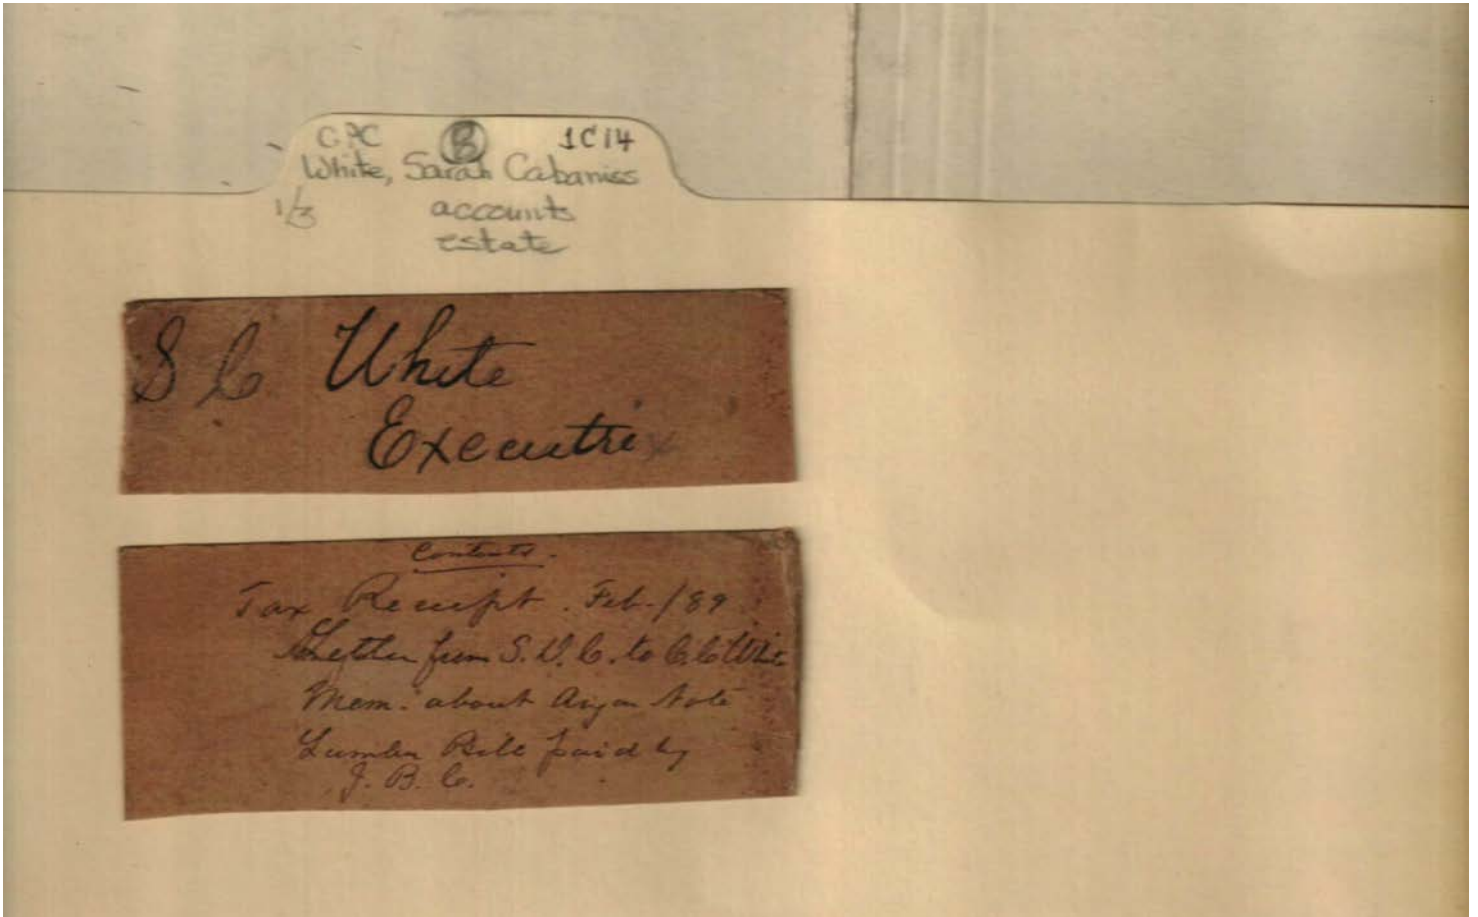 GPC B 1C14
White, Sarah Cabaniss
1/3 accounts
estate
S C White
Executrix
Contents.
Tax Receipt. Feb. /89
Letter from S. D. C. to C. C White
Mem. about Note
Lumber Bill paid by
J. B. C.